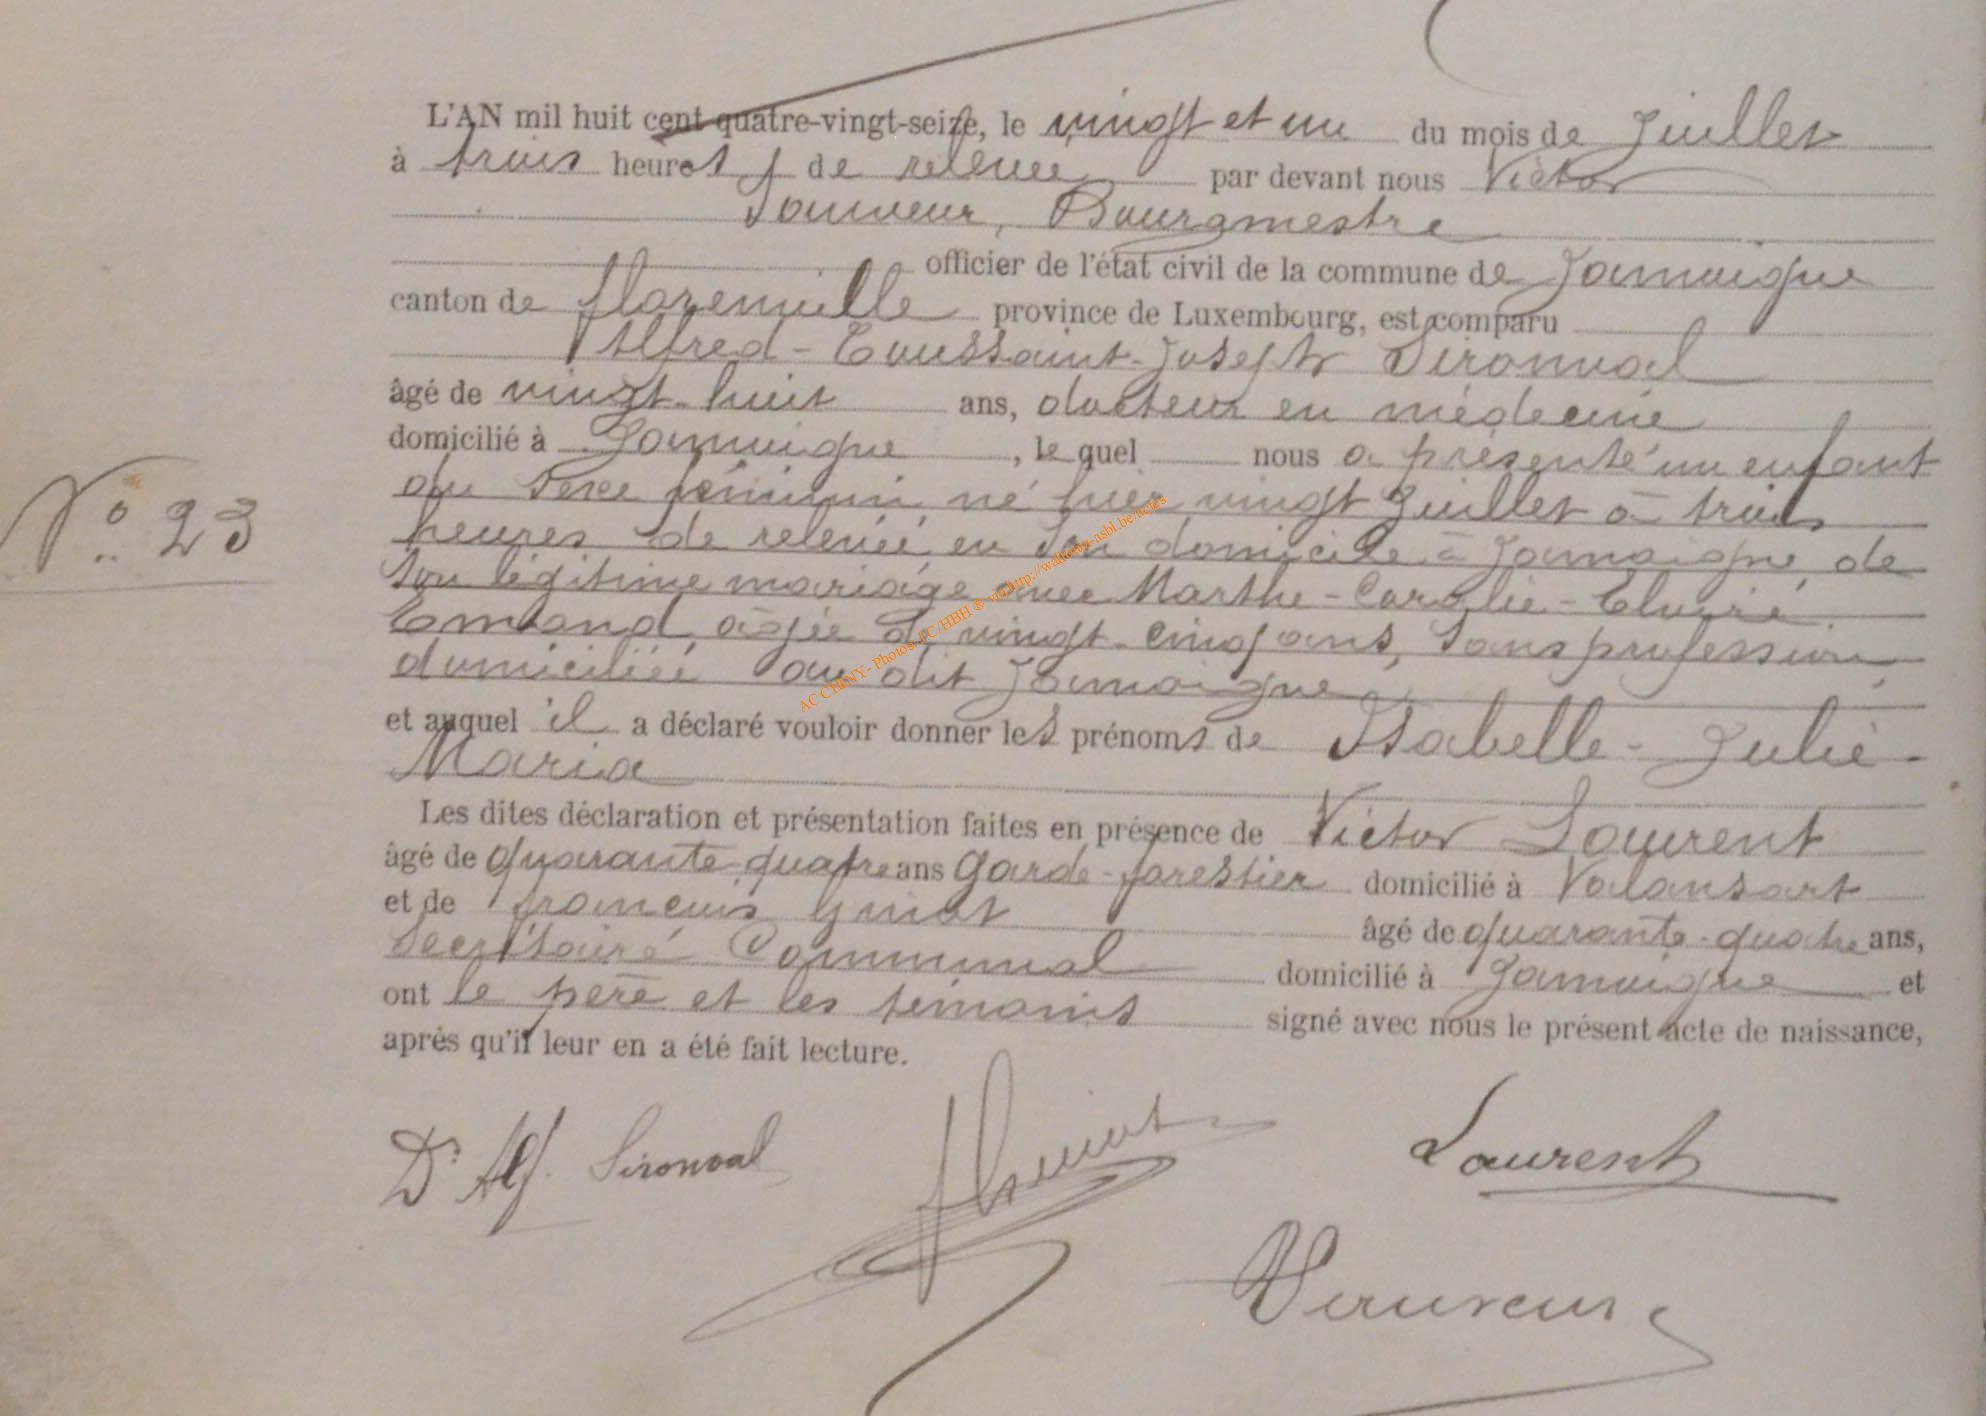 L'AN mil huit cent quatre-vingt-seize, le vingt et un du mois de Juillet
à trois heures de relevée par devant nous Victor
Sauveur, Bourgmestre
officier de l'état civil de la commune de Jamoigne
canton de florenville province de Luxembourg, est comparu
Alfred - Toussaint - Joseph Sironval
âgé de vingt-huit ans, docteur en médecine
domicilié à Jamoigne, le quel nous a présenté un enfant
du sexe féminin né hier vingt Juillet à trois
N° 23
heures de relevée en son domicile à Jamoigne, de
son légitime mariage avec Marthe - Coralie - Elvire
âgée de vingt-cinq ans, sans profession
domiciliée au dit Jamoigne
et auquel il a déclaré vouloir donner les prénoms de Isabelle - Julie -
Maria
Les dites déclaration et présentation faites en présence de Victor Laurent
âgé de quarante quatre ans Garde-forestier domicilié à Valansart
et de françois âgé de quarante-quatre ans,
Secrétaire Communal domicilié à Jamoigne et
ont le père et les témoins signé avec nous le présent acte de naissance,
après qu'il leur en a été fait lecture.
Dr Alf. Sironval Laurent
AC CHINY - Photos JC/HBH ® via http://wallonia-asbl.be/actes